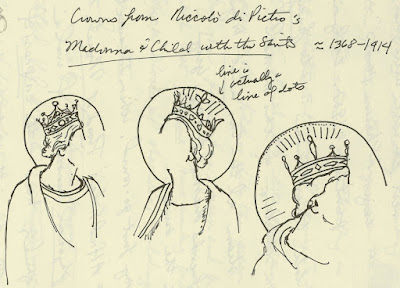 Crowns from Niccolò di Pietro's
Madonna & Child with the Saints ≈ 1368-1914
line is
actually a
line of dots